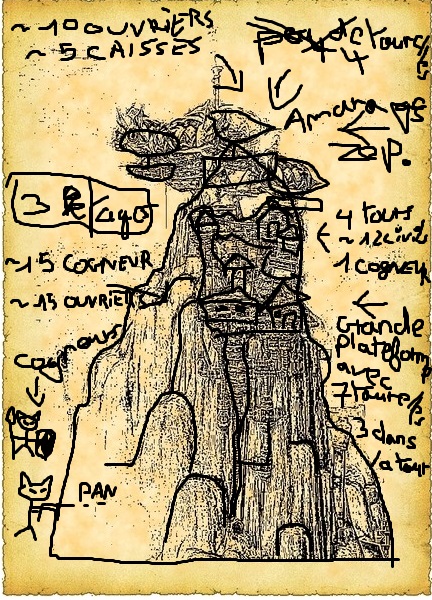 ~ 10 OUVRIERS
~ 5 CAISSES
4
Amarrage
ZEP.
3
Cagot
4 tours
~ 12 civils
1 COGNEUR
~ 15 COGNEUR
~ 15 OUVRIERS
cogneurs
Grande
Plateforme
avec
7 tourelles
3 dans
la tour
PAN